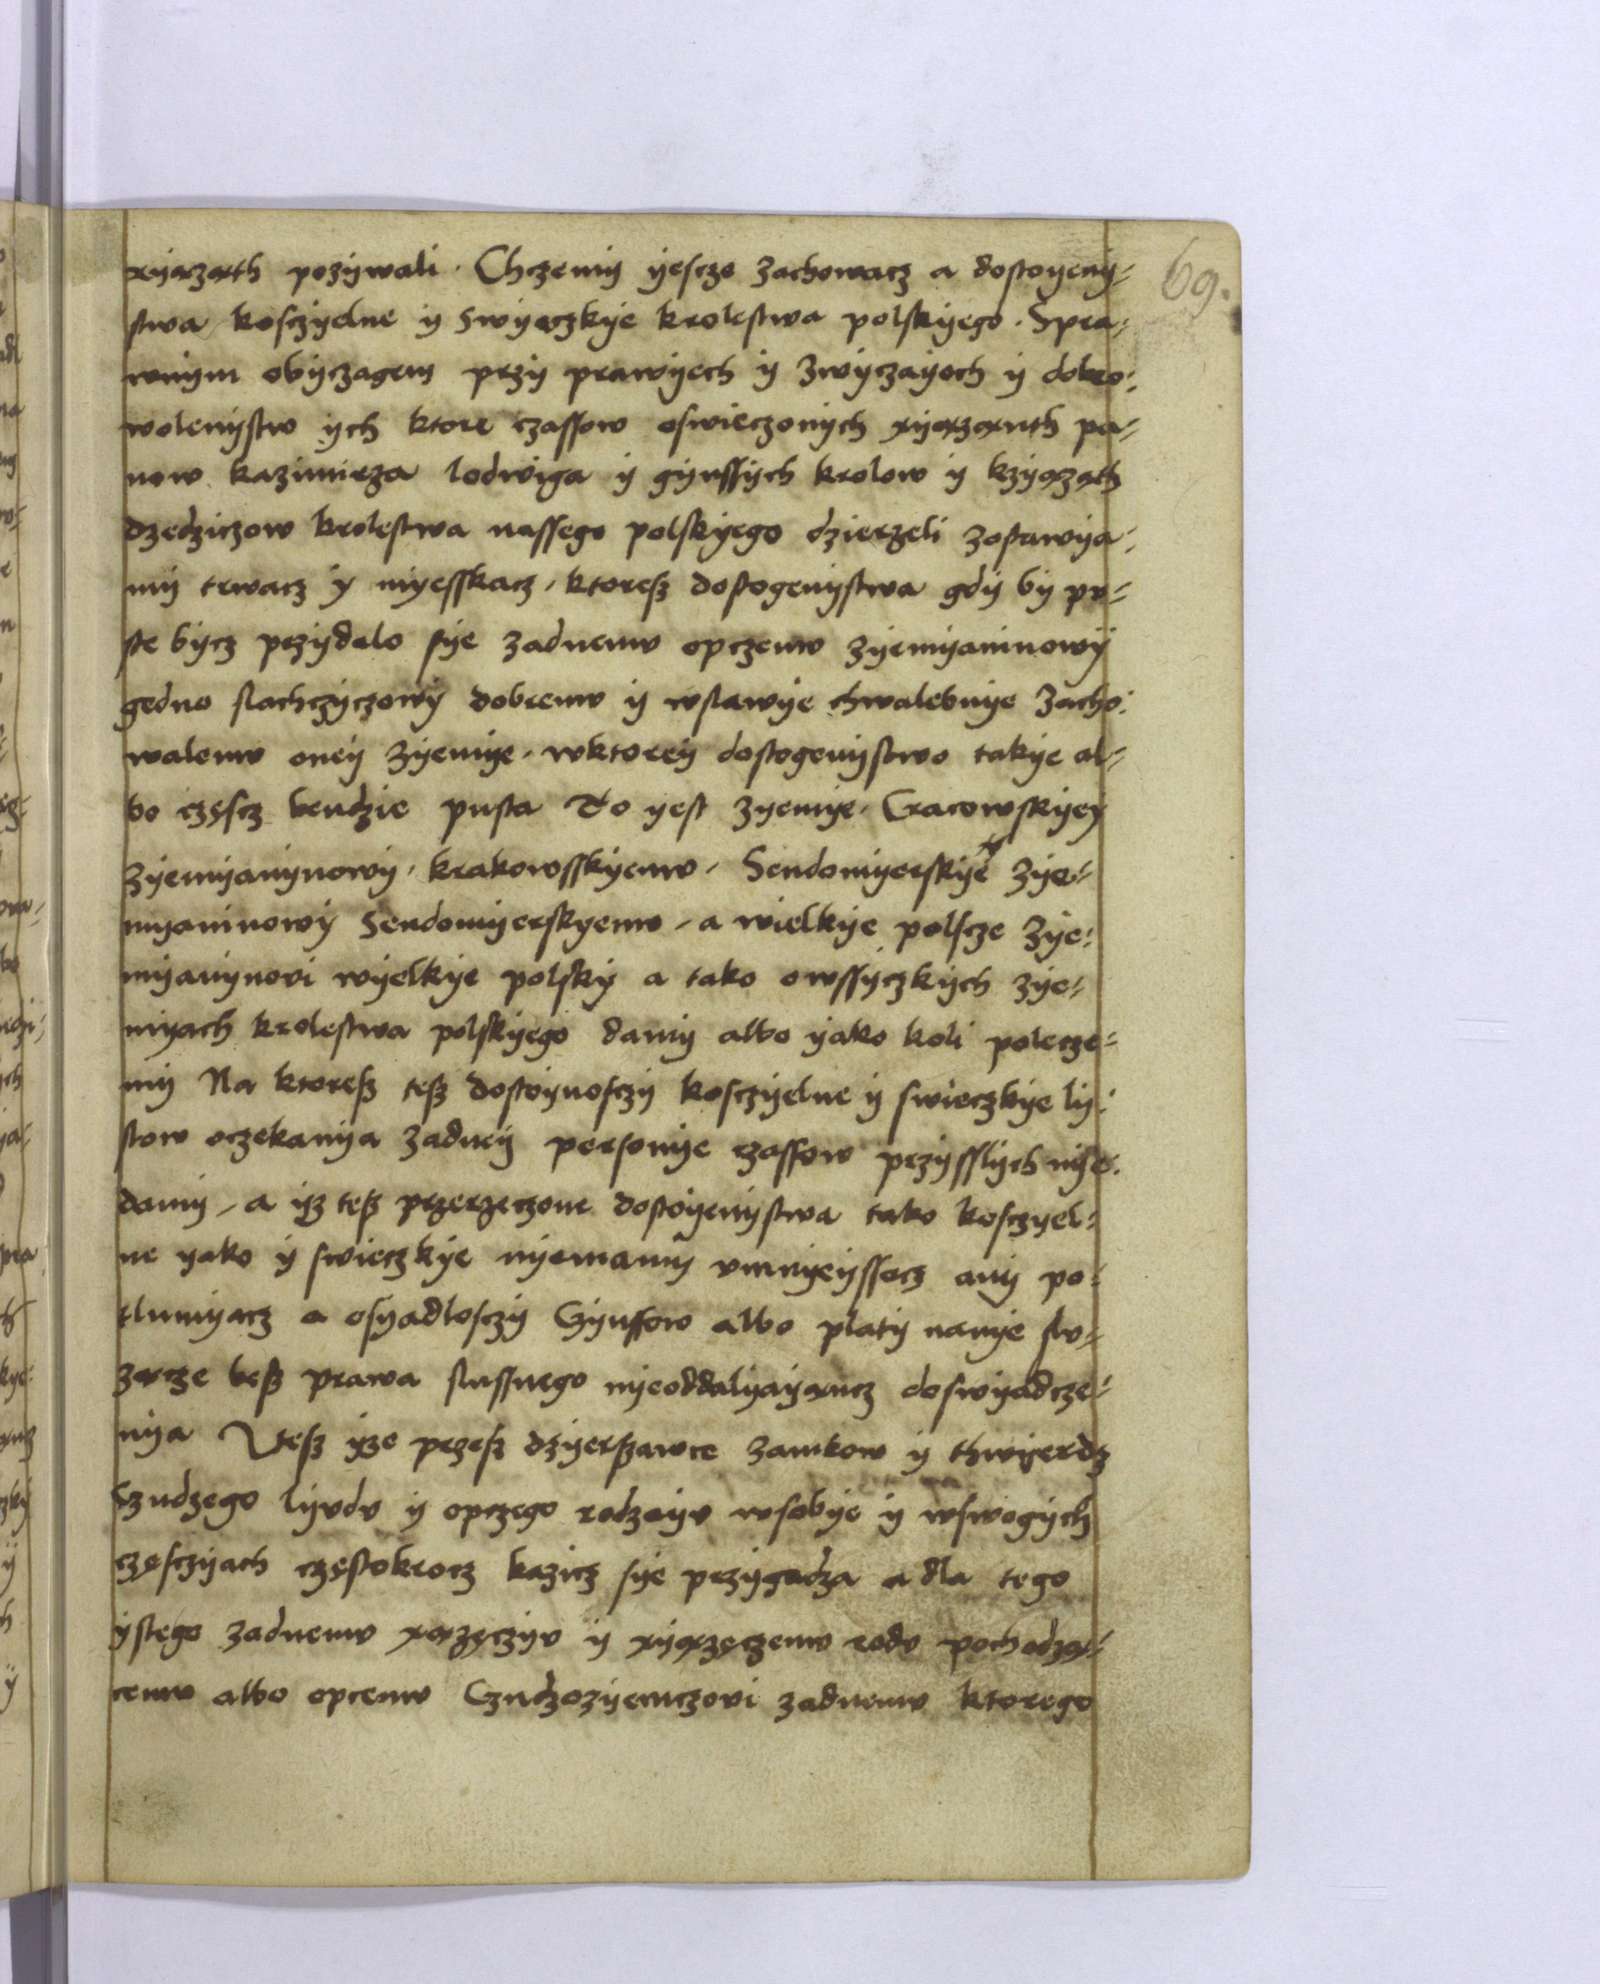 xyąząth pozywali . Chczemy yescze zachowacz a dostoyeny⸗
stwa kosczyelne y swyeczkye krolestwa polskyego . Spra⸗
wnym obyczagem przy prawyech y zwyczayoch y dobro⸗
wolenystw ych ktore czassow oswieczonych xyązanth pa⸗
now kazimirza lodwiga y gynssych krolow y kzyązath
dzedziczow krolestwa nassego polskyego dzierzeli zostawya⸗
my trwacz y myesskacz , ktoresz dostogenystwa gdy by pv⸗
ste bycz przydalo sye zadnemv opczemv zyemyaninowy
gedno slachczyczowy dobremv y wslawye chwalebnye zacho⸗
walemv oney zyemye , wktorey dostogenystwo takye al⸗
bo częscz bendzie pusta To yest zyemye , Cracowskyey
zyemyanynowy , krakowsskyemv , Sendomyerskyey zye⸗
myaninowy Sendomyerskyemv , a wielkye polscze zye⸗
myanynovi wyelkye polsky a tako owssyczkych zye⸗
myach krolestwa polskyego damy albo yako koli polecze⸗
my Na ktoresz tesz dostoynosczy kosczyelne y swieczkye ly⸗
stow oczekanya zadney personye czassow przysslych nye
damy , a yz tesz przerzeczone dostoyenystwa tako kosczyel⸗
ne yako y swieczkye nyemamy vmnyeyssacz any po⸗
tlumyacz a osyadlosczy Gynssow albo platy nanye slv⸗
zącze besz prawa slussnego nyeoddalyayąncz doswyadcze⸗
nya Vtesz yze przesz dzyerszawce zamkow y thwyerdz
Czudzego lyvdv y opczego rodzayv wsobye y wswogych
częsczyach częstokrocz kazicz sye przygadza a dla tego
ystego zadnemv xązęczyv y xyązęczemv rodv pochodzą⸗
cemv albo opcemv Czudzozyemczovi zadnemv ktorego
69.